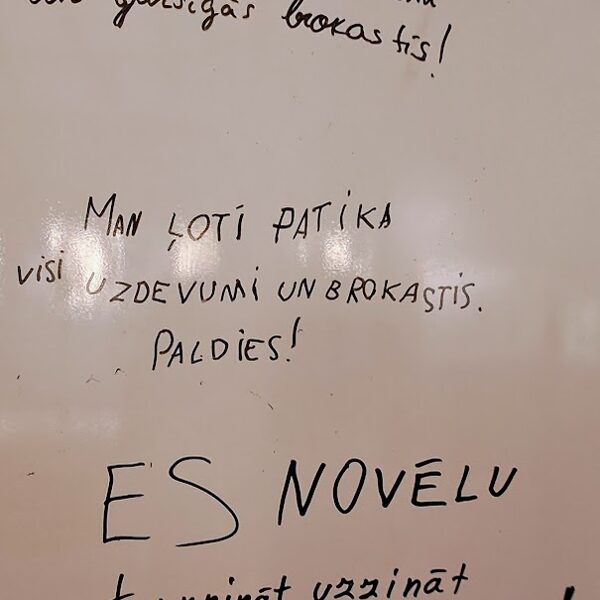 garšīgās brokastīs!
MAN ĻOTI PATIKA
visi UZDEVUMI UN BROKASTIS.
PALDIES!
ES NOVĒLU
turpināt uzzināt